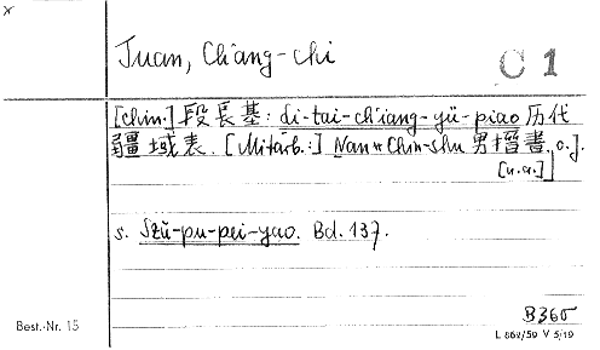 x
Tuan, Ch'ang-chi
C 1
[chin.] 段長基: Li-tai-ch'iang-yü-piao 历代
疆域表. [Mitarb.:] Nan * Chin-shu 男搢書. o.J.
[u.a.]]
s. Szŭ-pu-pei-yao. Bd. 137.
B365
Best.-Nr. 15
L 868/59 V 5/19